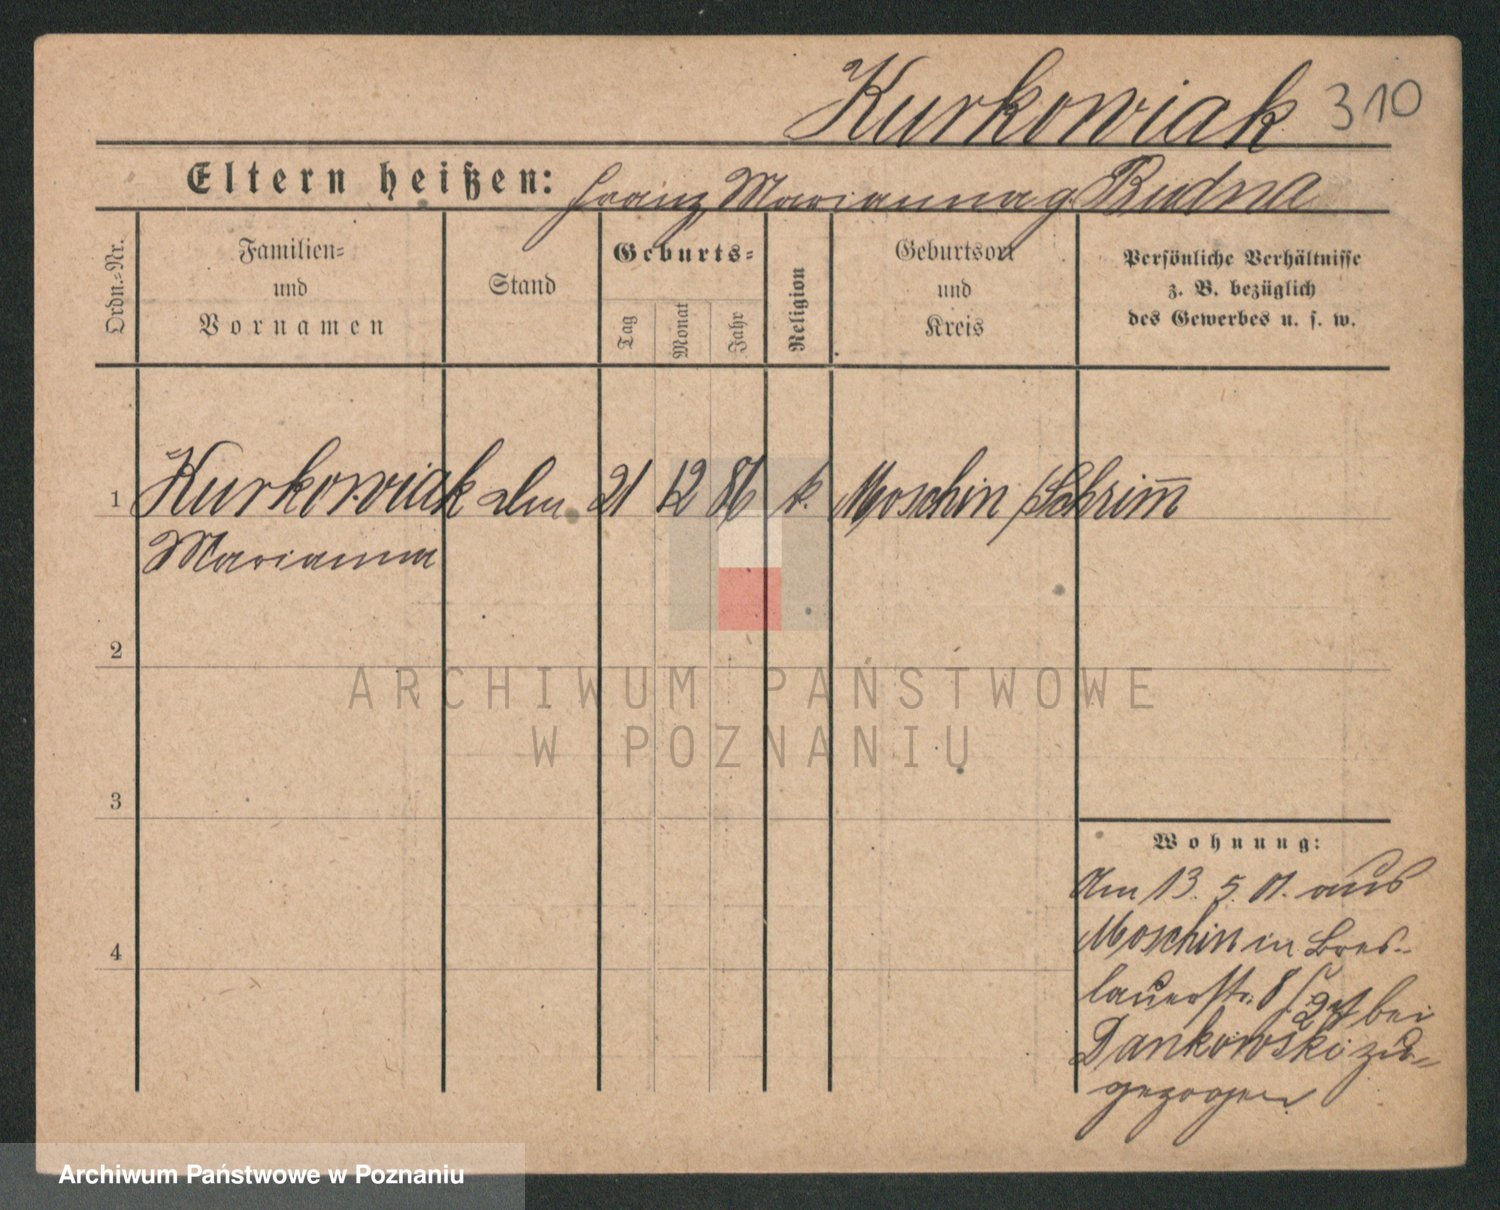 Kurkowiak 310
Eltern heißen: Franz Marianna g. Rudna
Ordn.-Nr.
Familien-
und
Vornamen
Stand
Geburts-
Tag
Monat
Jahr
Religion
Geburtsort
und
Kreis
Persönliche Verhältnisse
z. B. bezüglich
des Gewerbes u. s. w.
1 Kurkowiak 21 12 86 k. Moschin /Schrim̄
Marianna
2
ARCHIWUM PAŃSTWOWE
W POZNANIU
3
Wohnung:
Am 13. 5. 01. aus
Moschin in Bres-
4
lauerstr. 8 bei
Dankowski zu-
gezogen
Archiwum Państwowe w Poznaniu